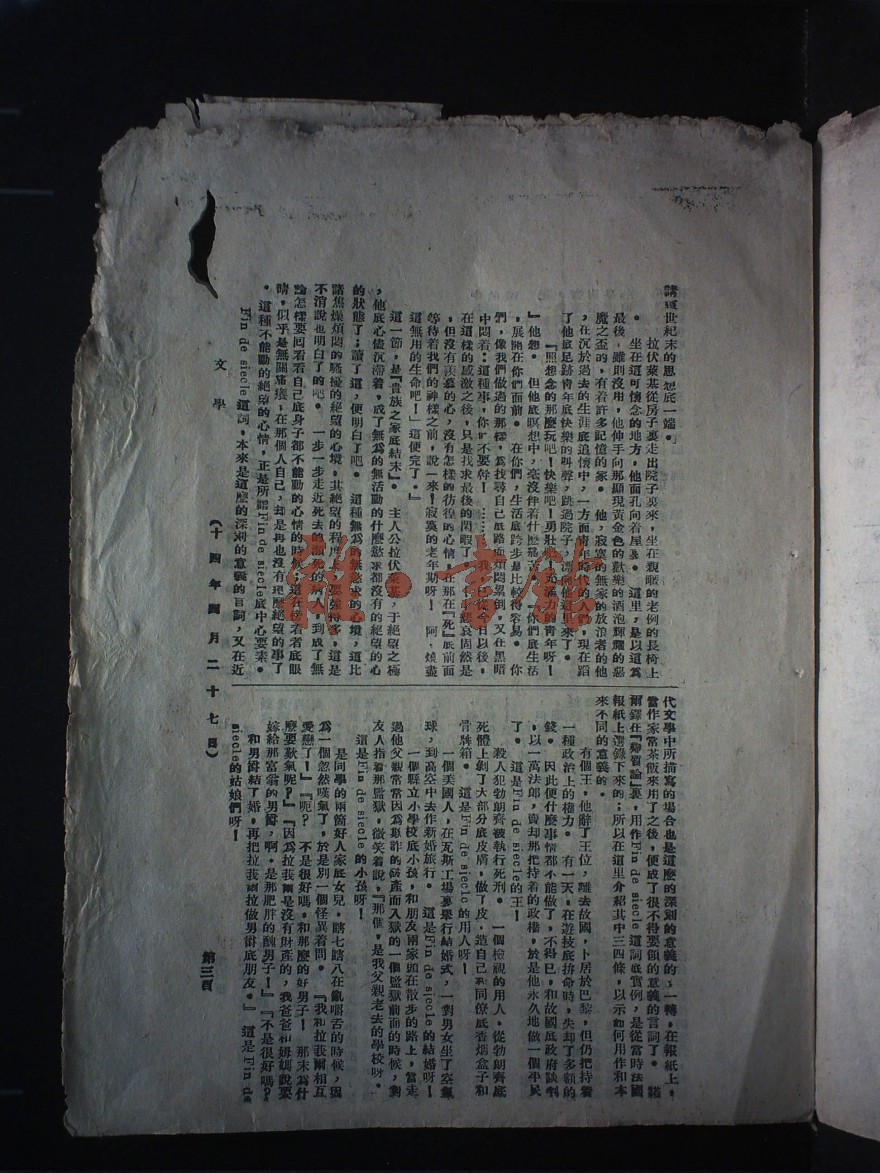 講頭世紀末的思想底一端。」
拉伏萊基從房子裏走出院子裏來，坐在親暱的老例的長椅上
。 坐在這可懷念的地方，他面孔向着屋裏。 這里，是以這為
最後，雖則沒用，他伸手向那顯現黃金色的歡樂的酒泡輝耀的惡
魔之盃的，有着許多記憶的家。 他，寂寞的無家的放浪者的他
，在沉於過去的生涯底追懷中，一方面青年時代的人們，現在蹈
了他底足跡青年底快樂的叫聲，跳過院子，漂向他這里來了。
『照想念的那麼玩吧！快樂吧！勇壯的充滿力的青年呀！
』他想。 但他底瞑想中，毫沒伴着什麼痛苦。『你們底生活
，展開在你們面前。 在你們，生活底跨步是比較得容易。 你
們，像我們做過的那樣，為找尋自己底路而煩悶累倒，又在黑暗
中悶着：這種事，你們不要幹！……我已從今日以後，
在這樣的感激之後，只是找求最後的閑暇了。 悲哀固然是
，但沒有羨慕的心，沒有怎樣的彷徨的心情，在那在『死』底前面
等待着我們的神樣之前，說一來！寂寞的老年期呀！ 阿，燒盡
這無用的生命吧！」這便完了。』
這一節，是『貴族之家底結末』。 主人公拉伏萊基，于絕望之極
，他底心儘沉滯着，成了無為的無活動的什麼慾求都沒有的絕望的心
的狀態了；讀了這，便明白了吧。 這種無為的無慾求的心境，這比
諸焦燥煩悶的騷擾的絕望的心境，其絕望的程度上要強得多，這是
不消說也明白了的吧。 一步一步走近死去的瀕死的病人，到成了無
論怎樣要回看看自己底身子都不能動的心情的時候；這在旁看者底眼
睛，似乎是無關痛癢，在那個人自己，却是再也沒有那麼絕望的事了
。 這種不能動的絕望的心情，正是所謂Fin de siecle底中心要素。
Fin de siecle這詞，本來是這麼的深刻的意義的言詞，又在近
代文學中所描寫的場合也是這麼的深刻的意義的；一轉，在報紙上，
當作家常茶飯來用了之後，便成了很不得要領的意義的言詞了。 諾
爾鐸在『頹質論』裏，用作Fin de siecle這詞底實例，是從當時法國
報紙上選錄下來的；所以在這里介紹其中三四條，以示如何用作和本
來不同的意義的。
有個王，他辭了王位，離去故國，卜居於巴黎，但仍把持着
一種政治上的權力。 有一天，在遊技底拚命時，失却了多額的
錢。 因此便什麼事情都不能做了，不得已，和故國底政府談判
，以一萬法郎，賣却那把持着的政權，於是他永久地做一個平民
了。 這是Fin de siecle的王！
殺人犯勃朗齊被執行死刑。 一個檢視的用人，從勃朗齊底
死體上剝了大部分底皮膚，做了皮，造自己和同僚底香烟盒子和
骨牌箱。 這是Fin de siecle的用人呀！
一個美國人，在瓦斯工場裏舉行結婚式，一對男女坐了空氣
球，到高空中去作新婚旅行。 這是Fin de siecle的結婚呀！
一個縣立小學校底小孩，和朋友兩家頭在散步的路上，當走
過他父親常常因為欺詐的破產而入獄的一個監獄前面的時候，對
友人指着那監獄，微笑着說，『那個，是我父親老去的學校呀。
這是Fin de siecle的小孩呀！
是同學的兩箇好人家底女兒，瞎七瞎八在亂嚼舌的時候，因
為一個忽然嘆氣了，於是別一個怪異着問。 『我和拉我爾相互
愛戀了！』『呃？ 不是很好嗎。和那麼的好男子！ 那末為什
麼要歎氣呢？』『因為拉我爾是沒有財產的，我爸爸和姆媽說要
嫁給那富翁的男爵，啊。是那肥胖的醜男子！』『不是很好嗎？
和男爵結了婚，再把拉我爾拉做男爵底朋友。』 這是Fin de
siecle的姑娘們呀！
文學
（十四年四月二十七日）
第三頁
龍·書館